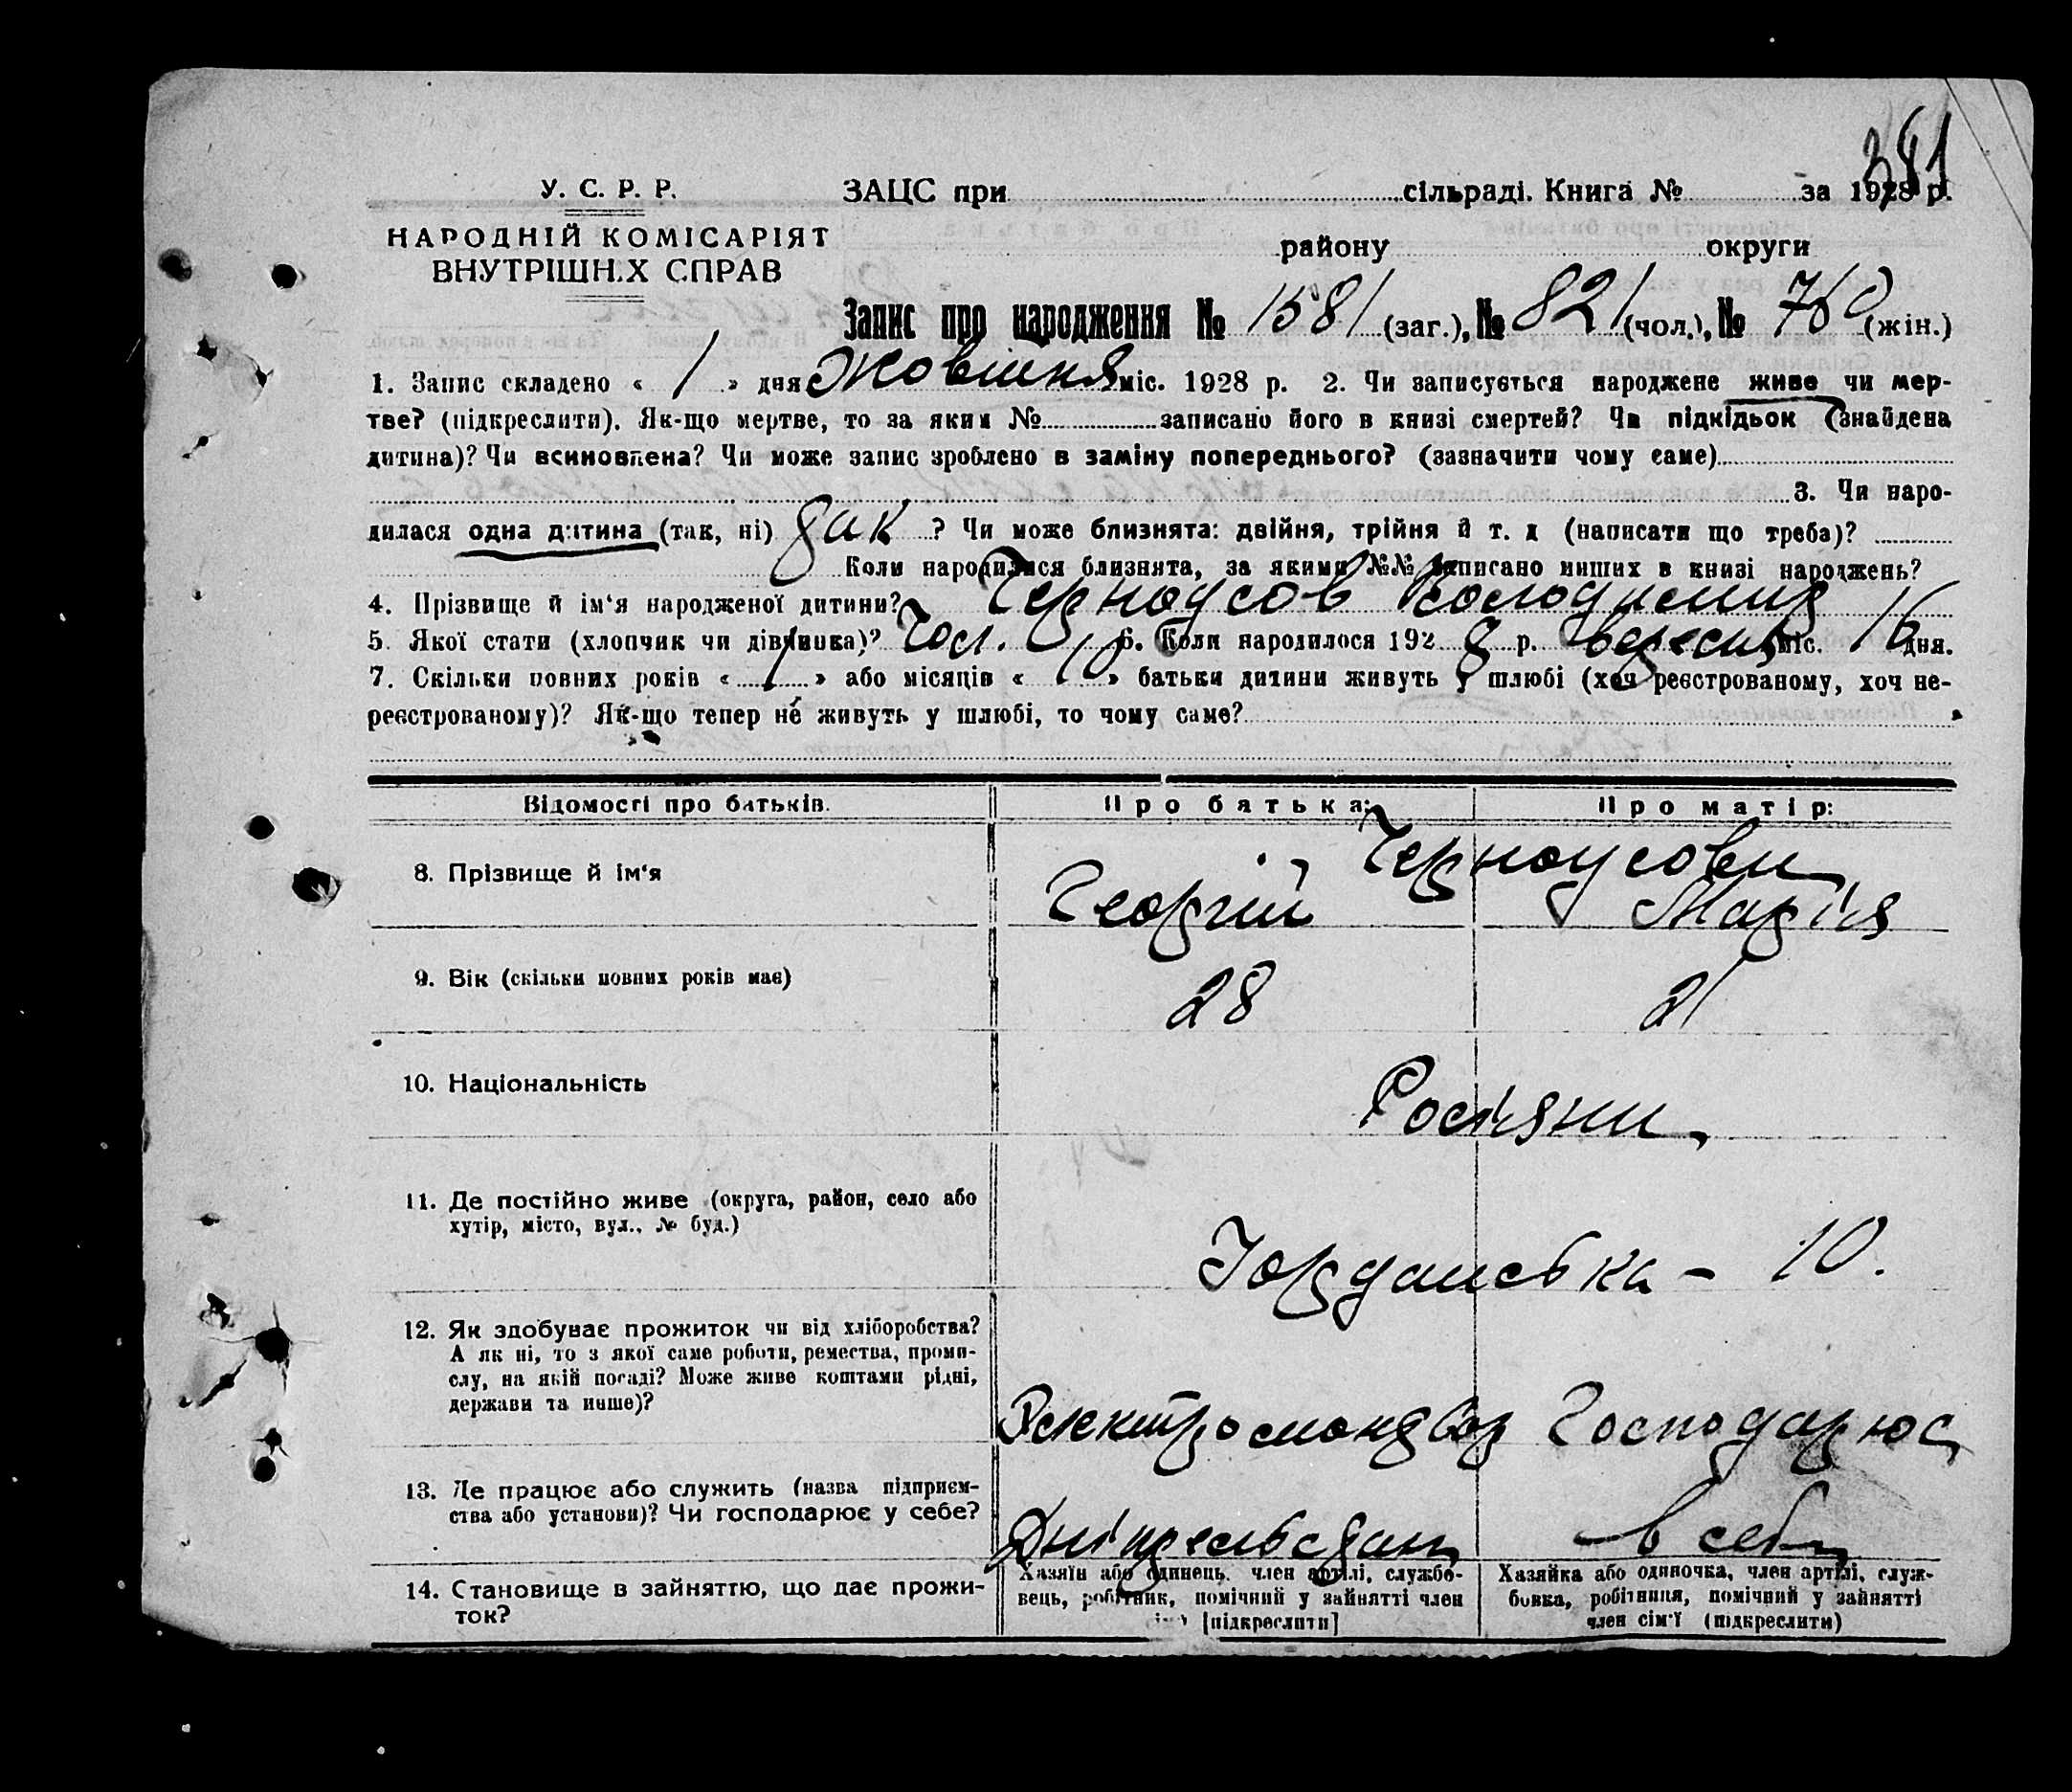 381
У. С. Р. Р. ЗАЦС при сільраді. Книга № за 1928 р.
НАРОДНІЙ КОМІСАРІЯТ
ВНУТРІШНІХ СПРАВ
району округи
Запис про народження № 1581 (заг.), № 821 (чол.), № 760 (жін.)
1. Запис складено « 1 » дня Жовтня міс. 1928 р. 2. Чи записується народжене живе чи мер-
тве? (підкреслити). Як-що мертве, то за яким № записано його в книзі смертей? Чи підкідьок (знайдена
дитина)? Чи всиновлена? Чи може запис зроблено в заміну попереднього? (зазначити чому саме)
3. Чи наро-
дилася одна дитина (так, ні) так ? Чи може близнята: двійня, трійня й т. д (написати що треба)?
Коли народилися близнята, за якими №№ записано инших в книзі народжень?
4. Прізвище й ім‘я народженої дитини? Черноусов Володимир
5. Якої стати (хлопчик чи дівчинка)? Чол. 6. Коли народилося 1928 р. вересня міс. 16 дня.
7. Скільки повних років « 1 » або місяців « 10 » батьки дитини живуть у шлюбі (хоч реєстрованому, хоч не-
реєстрованому)? Як-що тепер не живуть у шлюбі, то чому саме?
Відомості про батьків. Про батька: Про матір:
Черноусови
8. Прізвище й ім‘я Георгій Марія
9. Вік (скільки повних років має) 28 21
10. Національність Росіяни
11. Де постійно живе (округа, район, село або
хутір, місто, вул., № буд.)
Іорданська - 10.
12. Як здобуває прожиток чи від хліборобства?
А як ні, то з якої саме роботи, ремества, проми-
слу, на якій посаді? Може живе коштами рідні,
держави та инше)?
Електромонтьор Господарює
13. Де працює або служить (назва підприєм-
ства або установи)? Чи господарює у себе?
в себе
14. Становище в зайняттю, що дає прожи-
ток?
Хазяїн або одинець, член артілі, службо-
вець, робітник, помічний у зайнятті член
[підкреслити]
Хазяйка або одиночка, член артілі, служ-
бовка, робітниця, помічний у зайнятті
член сім'ї (підкреслити)